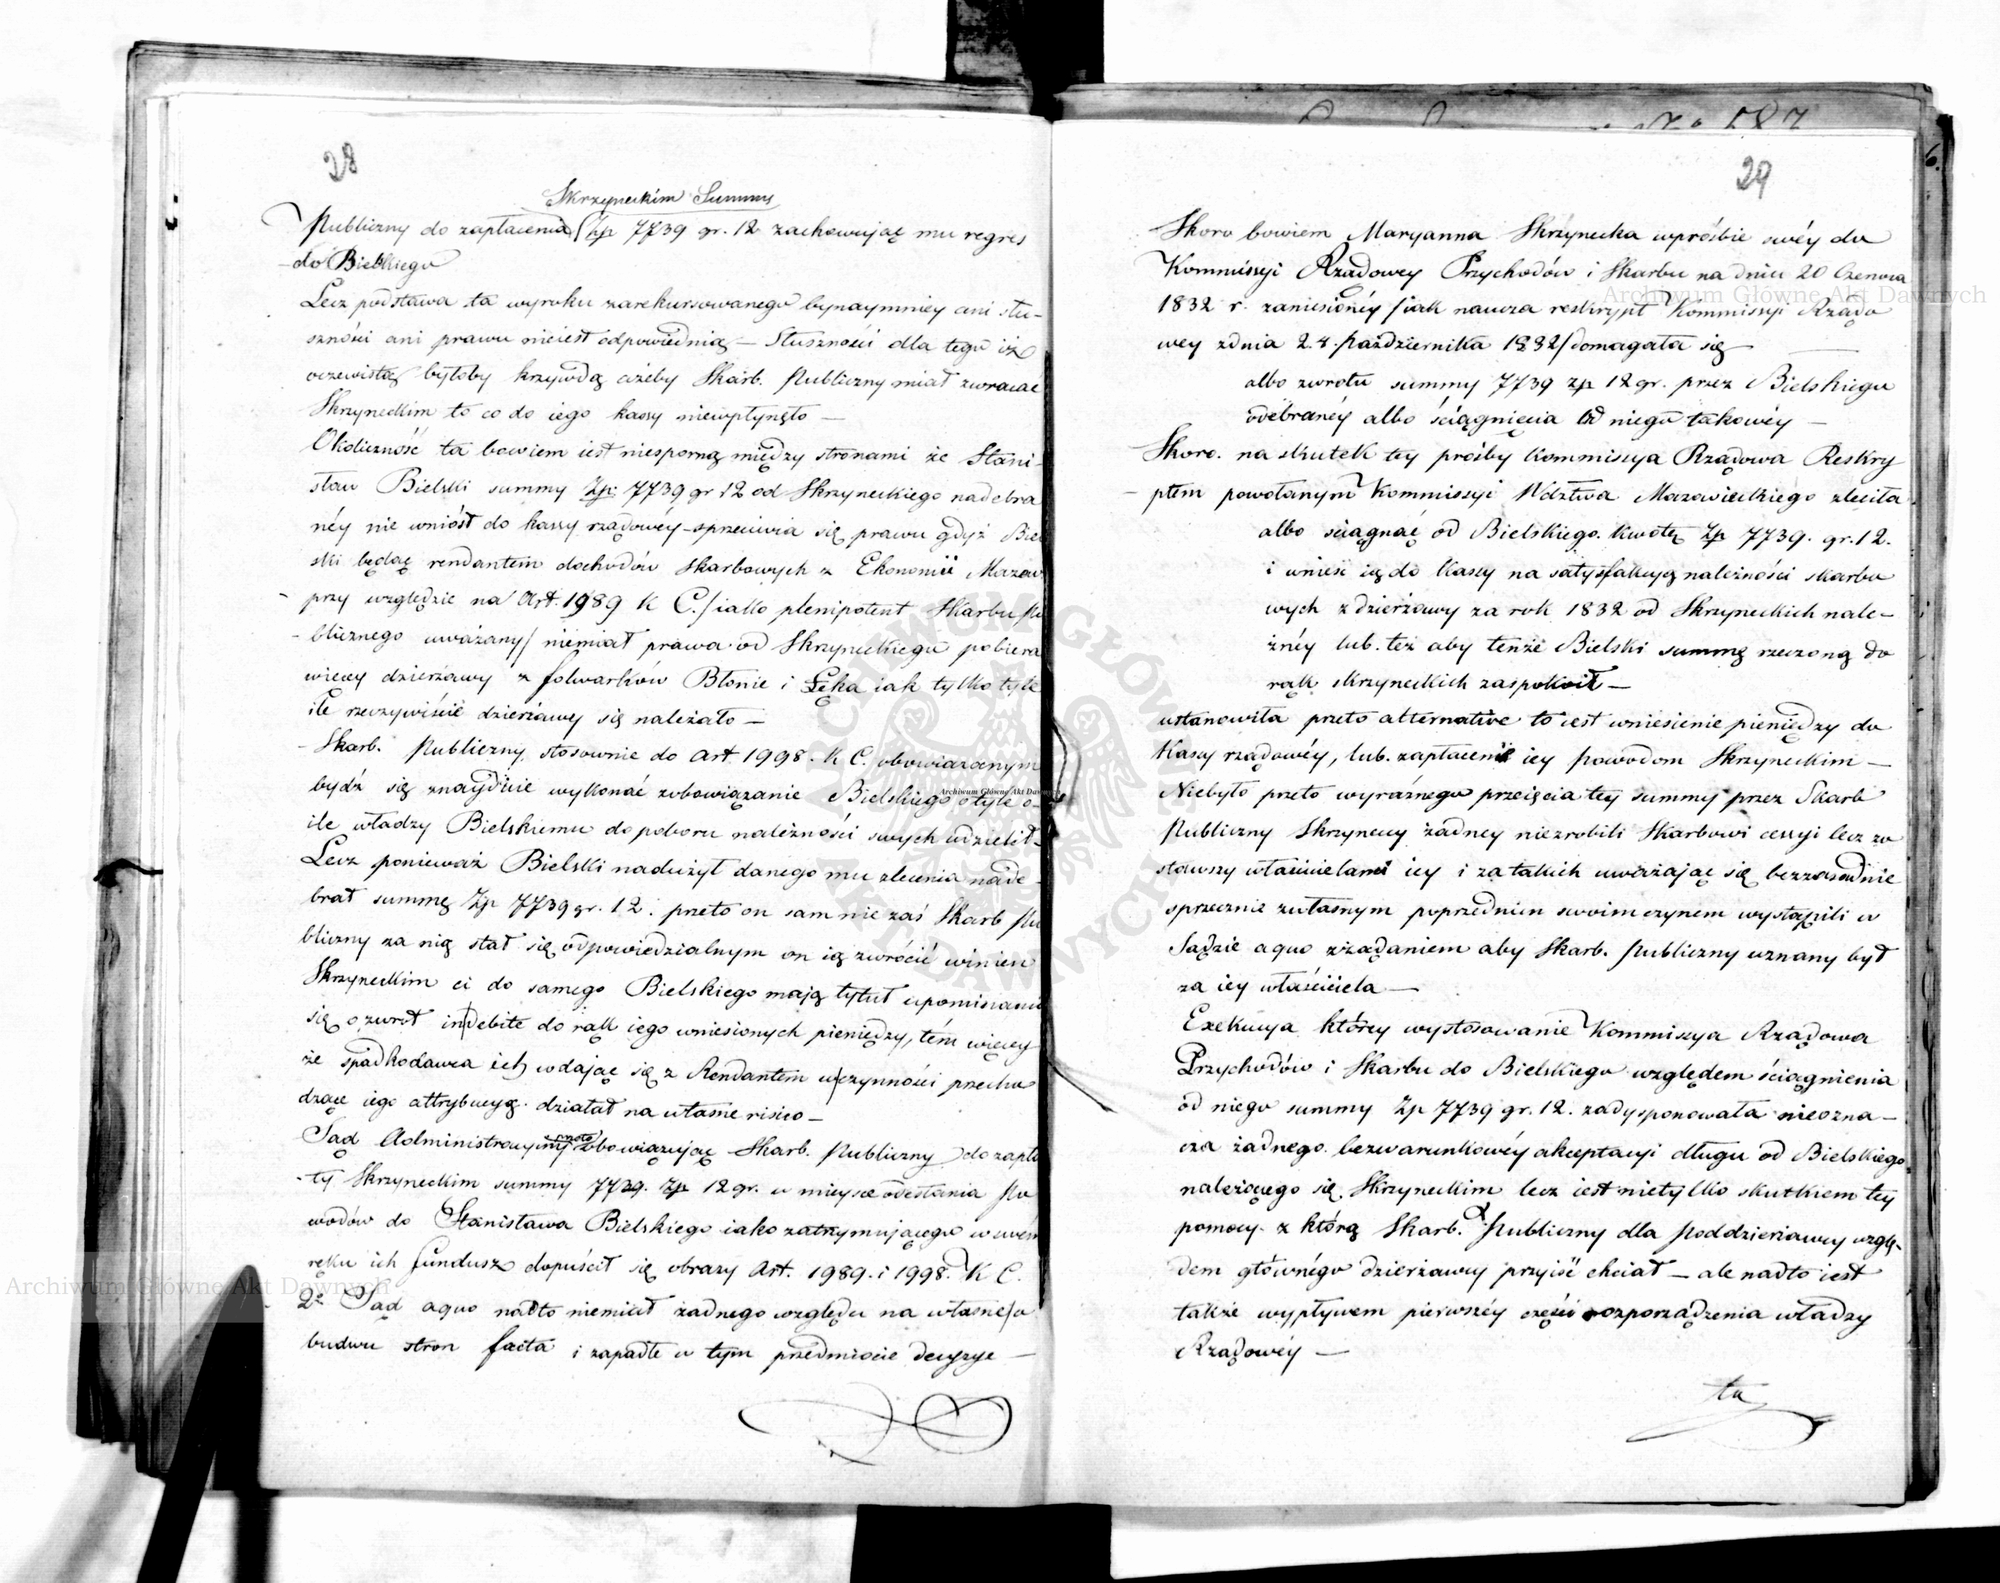 28
Skrzyneckim Summy
Publiczny do zapłacenia Zp 7739 gr. 12 zachowując mu regres
do Bielskiego
Lecz podstawa ta wyroku zarekursowanego bynaymniey ani słu-
szności ani prawu nieiest odpowiednią — Słuszności dla tego iż
oczewistą byłoby krzywdą ażeby Skarb. Publiczny miał zwracać
Skrzyneckim to co do iego kassy niewpłynęło —
Okoliczność ta bowiem iest niesporną między stronami że Stani-
sław Bielski summy Zp: 7739 gr 12 od Skrzyneckiego nadebra
néy nie wniósł do kassy rządowéy - sprzeciwia się prawu gdyż Biel
ski będąc rendantem dochodów skarbowych z Ekonomii Mazow
przy względzie na Art. 1989 K C. / iako plenipotent Skarbu Pu
blicznego uważany / niemiał prawa od Skrzyneckiego pobiera
więcey dzierżawy z folwarków Błonie i Łęka iak tylko tyle
ile rzeczywiście dzierżawy się należało —
Skarb. Publiczny stosownie do Art 1998. K C. obowiązanym
bydź się znayduie wykonać zobowiązanie Bielskiego o tyle o
ile władzy Bielskiemu do poboru należności swych udzielił.
Lecz ponieważ Bielski nadużył danego mu zlecenia nade-
brał summę Zp 7739 gr. 12. przeto on sam nie zaś Skarb Pu
bliczny za nią stał się odpowiedzialnym on ią zwrócić winien
Skrzyneckim ci do samego Bielskiego maią tytuł upominani
się o zwrot indebite do rąk iego wniesionych pieniędzy, tém więcey
że spadkodawca ich wdaiąc się z Rendantem w czynności precho
dzące iego attrybucyą działał na własne risico —
Sąd Administracyiny obowiązując Skarb. Publiczny do zapła
ty Skrzyneckim summy 7739. Zp 12 gr. w mieysce odesłania Po
wodów do Stanisława Bielskiego iako zatrzymującego w swém
ręku ich fundusz dopuścił się obrazy Art. 1989. i 1998. K C.
2e Sąd aquo nadto niemiał żadnego względu na własne o
budwu stron facta i zapadłe w tym przedmiocie decyzye —
29
Skoro bowiem Maryanna Skrzynecka wprośbie swéy do
Kommissyi Rządowey Przychodów i Skarbu na dniu 20 Czerwca
1832 r. zaniesionéy / iak naucza reskrypt Kommissyi Rządo
wey zdnia 2.4. Października 1832 / domagała się —
albo zwrotu summy 7739 zp 12 gr. przez Bielskiego
odebranéy albo ściągnięcia od niego takowéy —
Skoro. na skutek tey prośby Kommissya Rządowa Reskry
ptem powołanym Kommissyi Wdztwa Mazowieckiego zleciła
albo sciągnąć od Bielskiego. kwotę Zp 7739. gr. 12.
i wnieść ią do Kassy na satysfakcyą należności skarbo
wych z dzierżawy za rok 1832 od Skrzyneckich nale-
żnéy lub. też aby tenże Bielski summę rzeczoną do
rąk skrzyneckich zaspokoił —
ustanowiła przeto alternative to iest wniesienie pieniędzy do
Kassy rządowéy, lub. zapłacenie iey powodom Skrzyneckim —
Niebyło przeto wyraźnego przeięcia tey summy przez Skarb
Publiczny Skrzyneccy żadney niezrobili Skarbowi cessyi lecz zo
stawszy właścicielami iey i za takich uważając się bezzasadnie
sprzecznie zwłasnym poprzednim swoim czynem wystąpili w
Sądzie aquo zżądaniem aby Skarb. Publiczny uznany był
za iey właściciela —
Exekucya którey wystosowanie Kommissya Rządowa
Przychodów i Skarbu do Bielskiego względem ściągnienia
od niego summy Zp 7739 gr. 12. zadysponowała nieozna-
cza żadnego. bezwarunkowéy akceptacyi długu od Bielskiego
należącego się. Skrzyneckim lecz iest nietylko skutkiem tey
pomocy. z którą Skarb. Publiczny dla Poddzierżawcy wzglę-
dem głównégo dzierżawcy przyiść chciał — ale nadto iest
także wypływem pierwszéy części rozporządzenia władzy
Rządowéy —
ta